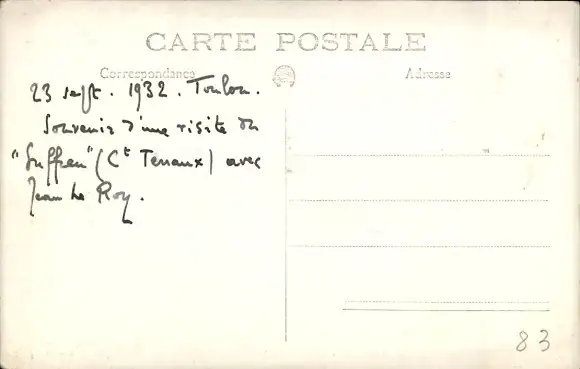 CARTE POSTALE
Correspondance
Adresse
23 sept. 1932. Toulon.
Souvenir d'une visite du
"Suffren" (Ct Ternaux) avec
Jean Le Roy.
83